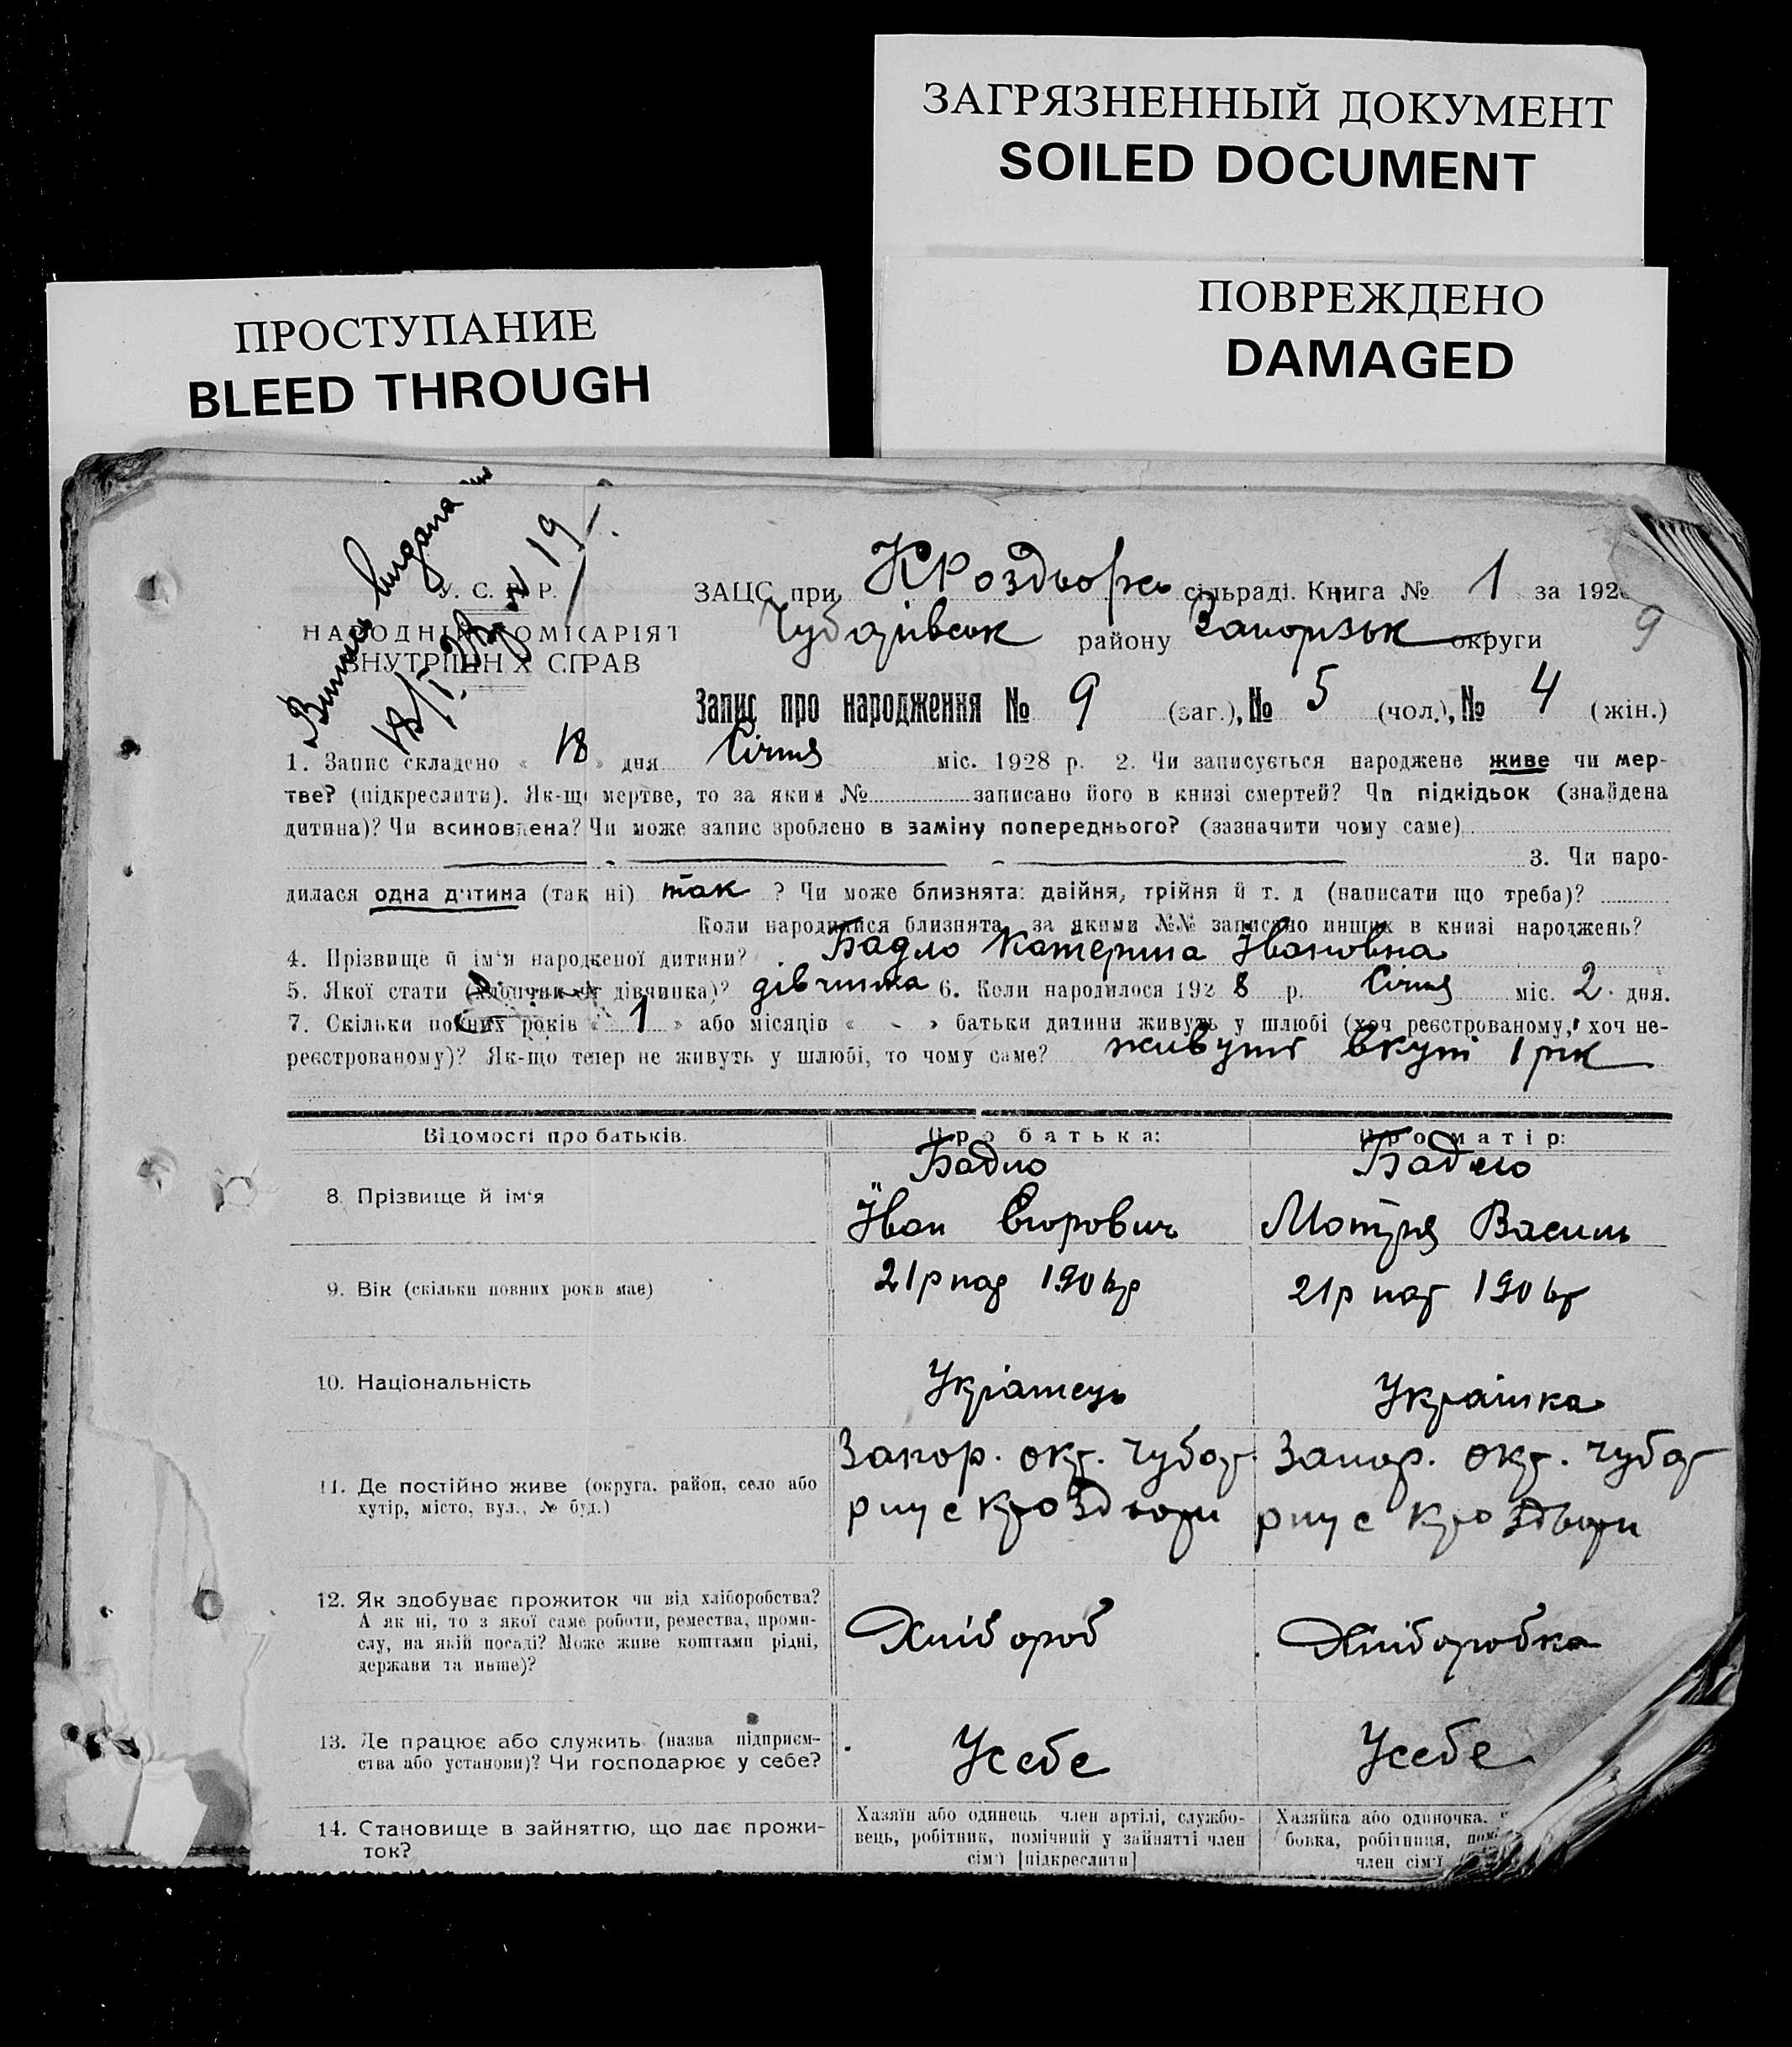 ЗАГРЯЗНЕННЫЙ ДОКУМЕНТ
SOILED DOCUMENT
ПОВРЕЖДЕНО
DAMAGED
ПРОСТУПАНИЕ
BLEED THROUGH
У. С. Р. Р.
НАРОДНІЙ КОМІСАРІЯТ
ВНУТРІШНІХ СПРАВ
ЗАЦС при сільраді. Книга № 1 за 192
району Запорізьк округи
9
Запис про народження № 9 (заг.), № 5 (чол.), № 4 (жін.)
1. Запис складено « 18 » дня Січня міс. 1928 р. 2. Чи записується народжене живе чи мер-
тве? (підкреслити). Як-що мертве, то за яким № записано його в книзі смертей? Чи підкідьок (знайдена
дитина)? Чи всиновлена? Чи може запис зроблено в заміну попереднього? (зазначити чому саме)
3. Чи наро-
дилася одна дитина (так ні) так ? Чи може близнята: двійня, трійня й т. д (написати що треба)?
Коли народилися близнята, за якими №№ записано инших в книзі народжень?
4. Прізвище й ім'я народженої дитини? Бадло Катерина Івановна
5. Якої стати (хлопчик чи дівчинка)? дівчинка 6. Коли народилося 192 8 р. Січня міс. 2. дня.
7. Скільки повних років « 1 » або місяців « - » батьки дитини живуть у шлюбі (хоч реєстрованому, хоч не-
реєстрованому)? Як-що тепер не живуть у шлюбі, то чому саме? живуть вкупі 1 рік
Відомості про батьків.
Про батька:
Про матір:
8. Прізвище й ім'я
Бадло
Іван Єгорович
Бадло
Мотря Василь
9. Вік (скільки повних років має)
21р 190
21р 190
10. Національність
Украінець
Українка
11. Де постійно живе (округа, район, село або
хутір, місто, вул., № буд.)
Запор. окр.
Запор. окр.
12. Як здобуває прожиток чи від хліборобства?
А як ні, то з якої саме роботи, ремества, проми-
слу, на якій посаді? Може живе коштами рідні,
держави та инше)?
Хлібороб
Хліборобка
13. Де працює або служить (назва підприєм-
ства або установи)? Чи господарює у себе?
Усебе
Усебе
14. Становище в зайняттю, що дає прожи-
ток?
Хазяїн або одинець член артілі, службо-
вець, робітник, помічний у зайнятті член
сім'ї [підкреслити]
Хазяйка або одиночка,
бовка, робітниця,
член сім'ї